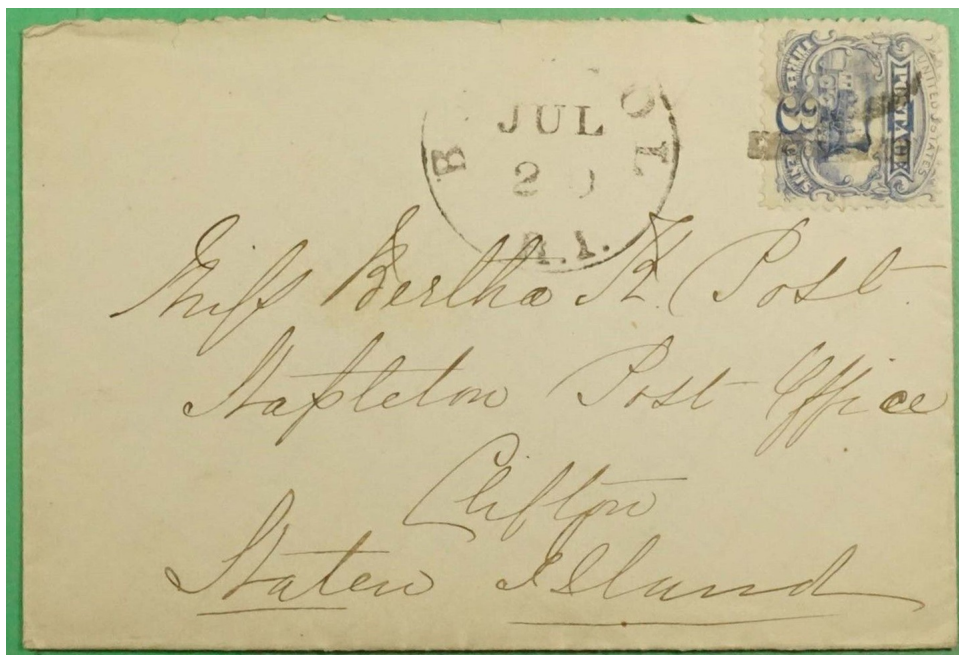 JUL
R.I.
UNITED STATES
POSTAGE
3
THREE
CENTS
Miss Bertha K. Post
Stapleton Post Office
Clifton
Staten Island